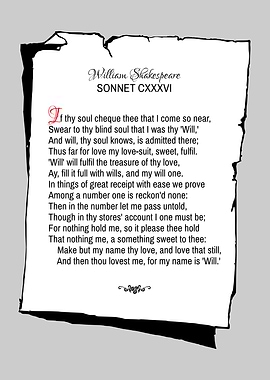 William Shakespeare
SONNET CXXXVI
If thy soul cheque thee that I come so near,
Swear to thy blind soul that I was thy 'Will,'
And will, thy soul knows, is admitted there;
Thus far for love my love-suit, sweet, fulfil.
'Will' will fulfil the treasure of thy love,
Ay, fill it full with wills, and my will one.
In things of great receipt with ease we prove
Among a number one is reckon'd none:
Then in the number let me pass untold,
Though in thy stores' account I one must be;
For nothing hold me, so it please thee hold
That nothing me, a something sweet to thee:
Make but my name thy love, and love that still,
And then thou lovest me, for my name is 'Will.'